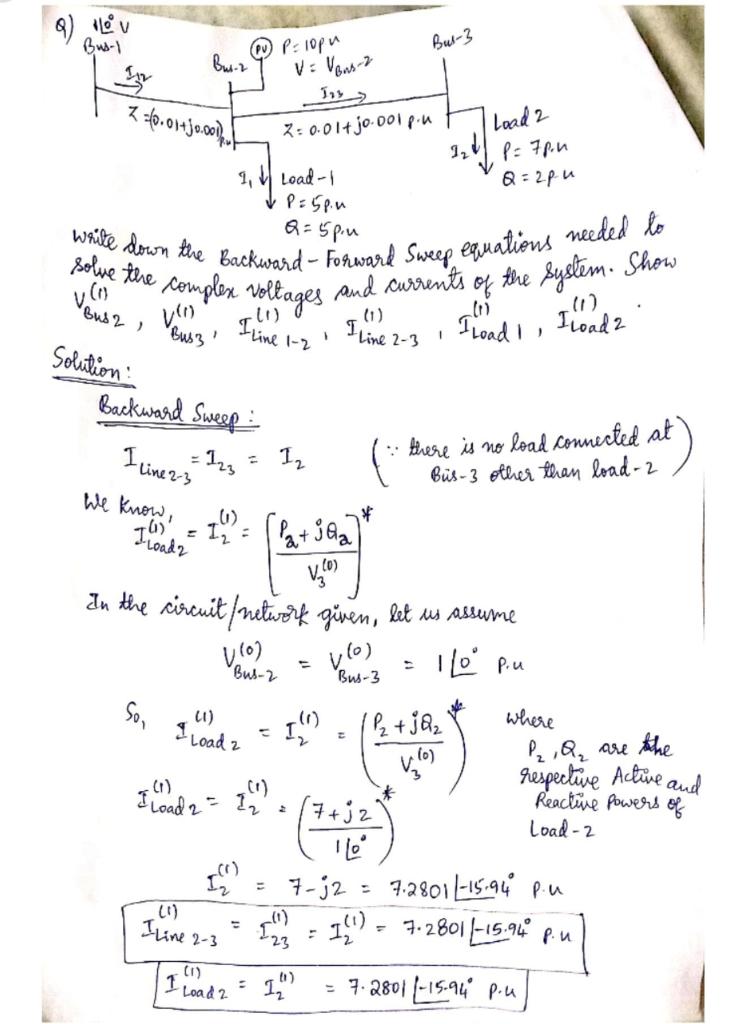 Q) 1∠0° V
Bus-1
Bus-2
PV P=10pu
V = V_Bus-2
Bus-3
I12
I23
Z=(0.01+j0.001)p.u
Z=0.01+j0.001 p.u
I1 Load-1
P=5p.u
Q=5p.u
I2 Load 2
P=7p.u
Q=2p.u
Write down the Backward-Forward Sweep equations needed to
solve the complex voltages and currents of the system. Show
V_Bus2^(1), V_Bus3^(1), I_Line 1-2^(1), I_Line 2-3^(1), I_Load 1^(1), I_Load 2^(1).
Solution:
Backward Sweep:
I_Line 2-3 = I23 = I2 (∵ there is no load connected at
Bus-3 other than load-2)
We know,
I_Load2^(1) = I2^(1) = [(P2+jQ2)/V3^(0)]*
In the circuit/network given, let us assume
V_Bus-2^(0) = V_Bus-3^(0) = 1∠0° p.u
So, I_Load 2^(1) = I2^(1) = ((P2+jQ2)/V3^(0))* where
P2, Q2 are the
respective Active and
Reactive Powers of
Load-2
I_Load 2^(1) = I2^(1) = ((7+j2)/1∠0°)*
I2^(1) = 7-j2 = 7.2801∠-15.94° p.u
I_Line 2-3^(1) = I23^(1) = I2^(1) = 7.2801∠-15.94° p.u
I_Load 2^(1) = I2^(1) = 7.2801∠-15.94° p.u